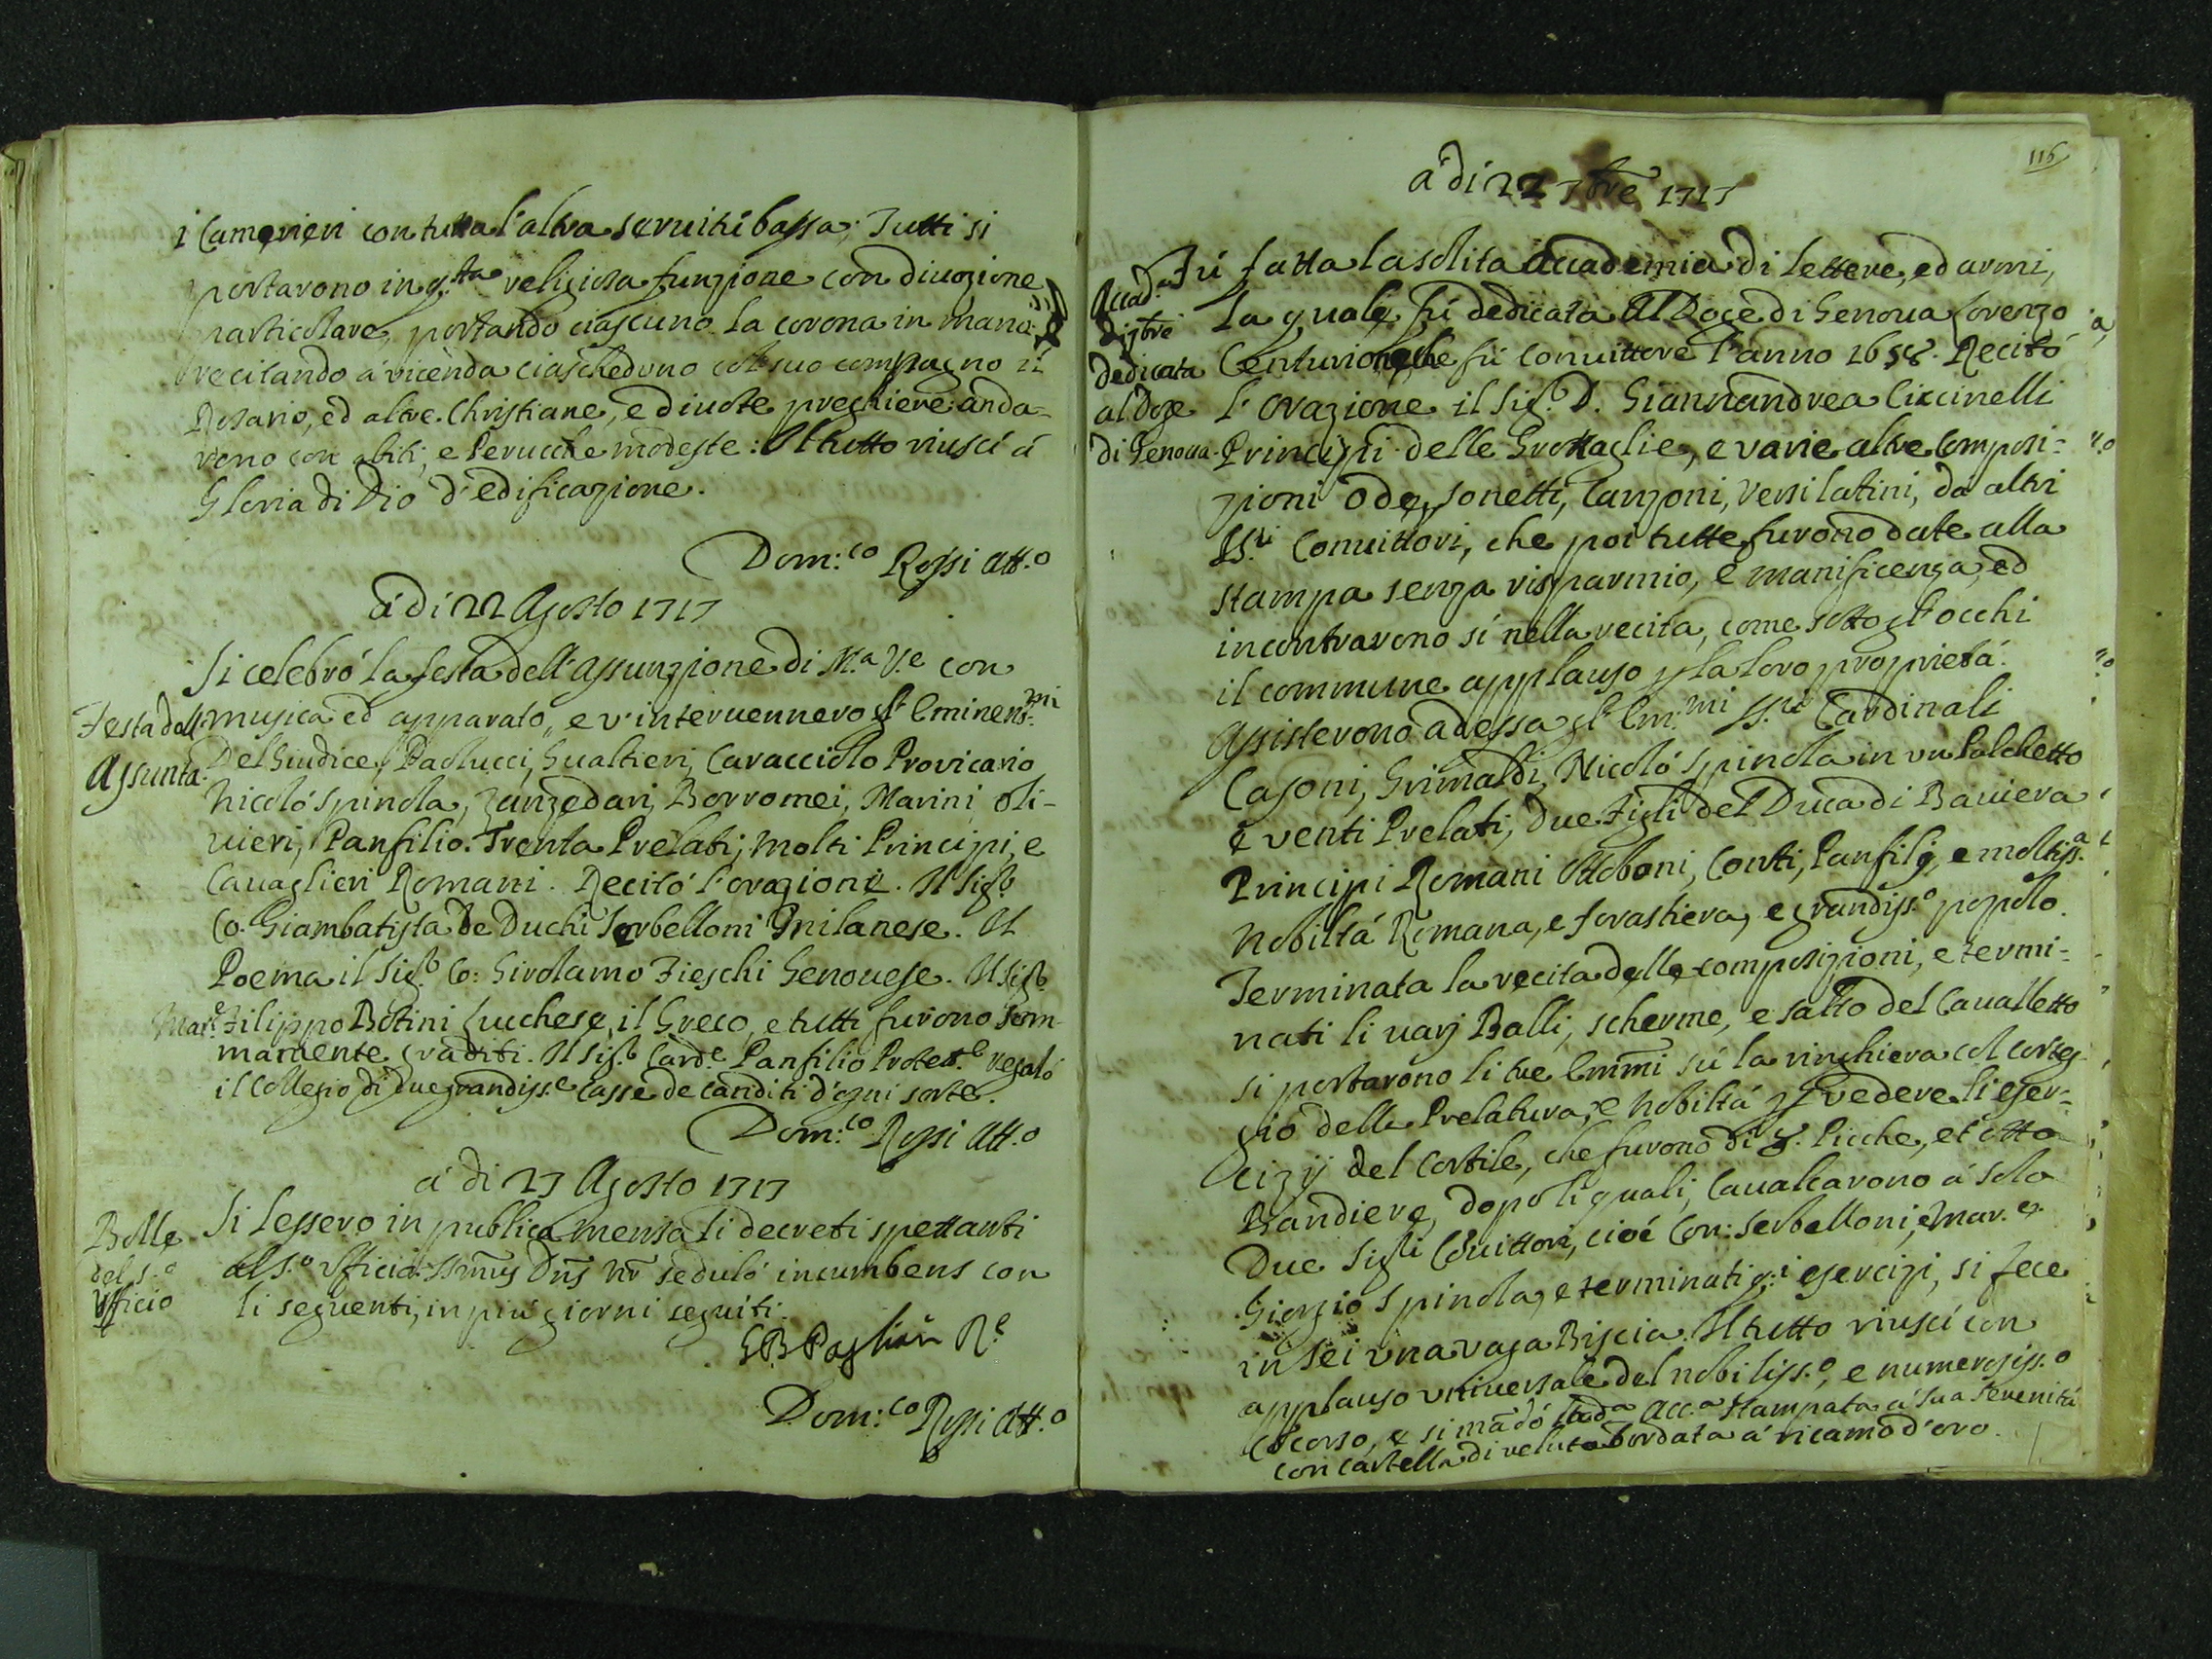 i Camerieri con tutta l'altra seruitú bassa; Tutti si
portarono in q.sta religiosa funzione con diuozione
particolare, portando ciascuno la corona in mano
recitando á vicenda ciaschedono col suo compagno il
Rosario, ed altre Christiane, e diuote preghiere: anda-
rono con abiti, e Perucche modeste: Il tutto riuscí á
Gloria di Dio d'edificazione.
Dom:co Rossi Att.o
á di 22 Agosto 1717
Si celebró la festa dell'Assunzione di M.a V.e con
Festa dell
Assunta.
musica ed apparato, e v'interuennero gl'Eminens.mi
Del Giudice, Paolucci, Gualtieri, Caracciolo Provicario
Nicoló Spinola, Zanzedari, Borromei, Marini, Oli-
uieri, Panfilio. Trenta Prelati, molti Principi, e
Cauaglieri Romani. Recitó l'orazione. Il Sig.r
Co. Giambatista De Duchi Serbelloni Milanese. Il
Poema il Sig.r Co: Girolamo Fieschi Genouese. Il Sig.r
Mar.e Filippo Botini Lucchese, il Greco, e tutti furono som-
mamente graditi. Il Sig.r Card.e Panfilio Protett.e regaló
il Collegio di due grandiss.e Casse de canditi d'ogni sorte.
Dom:co Rossi Att.o
á di 27 Agosto 1717
Bolle
del S.o
Vfficio
Si lessero in publica mensa li decreti spettanti
al S.o Vfficio. SSmus Dns nr seduló incumbens con
li seguenti, in piú giorni seguiti.
GB Pagliari R.e
Dom:co Rossi Att.o
116
á di 22 7bre 1717
Accad.a
di 7bre
dedicata
al Doge
di Genoua.
Fú fatta la solita Accademia di lettere, ed armi,
La quale fú dedicata Al Doge di Genoua Lorenzo
Centurione, che fú Conuittore l'anno 1658. Recitó
l'Orazione il Sig.r D. Giannandrea Ciccinelli
Principi delle Grottaglie, e varie altre Composi-
zioni Ode, Sonetti, Canzoni, Versi latini, da altri
SS.ri Conuittori, che poi tutte furono date alla
stampa senza risparmio, e manificenza, ed
incontrarono sí nella recita, come sotto gl'occhi
il commune applauso p la loro proprietá.
Assisterono ad essa gl'Em.mi SS.ri Cardinali
Casoni, Grimaldi, Nicoló Spinola in vn Palchetto
e venti Prelati, Due Figli del Duca di Bauiera
Principi Romani Ottoboni, Conti, Panfilij, e moltiss.a
Nobiltá Romana, e forastiera, e grandiss.o popolo.
Terminata la recita delle composizioni, e termi-
nati li varj Balli, scherme, e salto del Caualletto
si portarono li tre Emmi sú la ringhiera col corteg-
gio della Prelatura, e Nobiltá p vedere li eser-
cizij del Cortile, che furono di 8. Picche, et otto
Bandiere, dopo li quali, Caualcarono á solo
Due Sigri Conuittori, cioé Con: Serbelloni, e Mar.e
Giorgio Spinola, e terminati q.i esercizi, si fece
in sei vna vaga Biscia. Il tutto riuscí con
applauso vniuersale del nobiliss.o, e numerosiss.o
Cócorso, e si mádó la d.a Acc.a stampata á Sua Serenitá
con cartella di veluto bordata á ricamo d'oro.